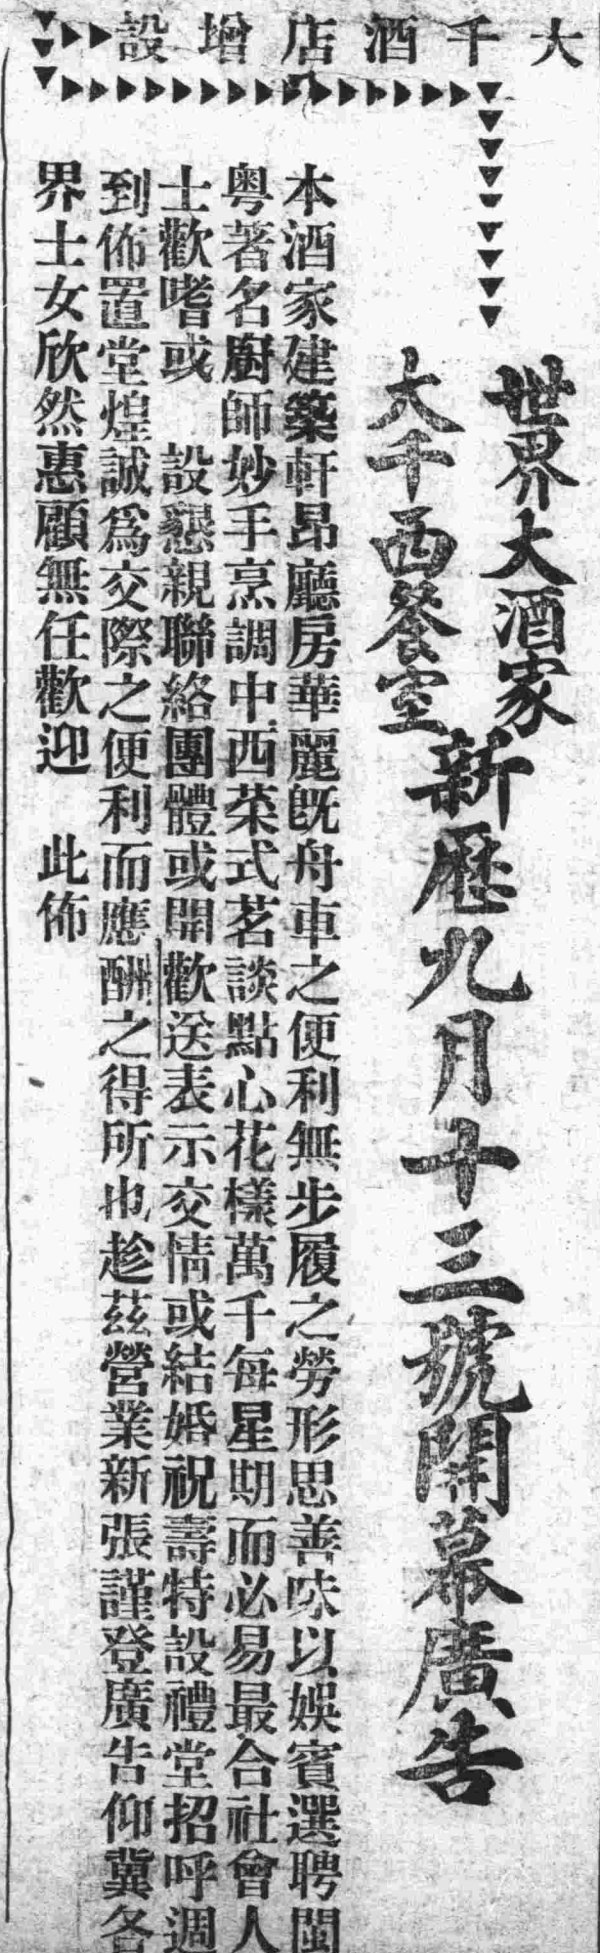 大千酒店增設
世界大酒家
大千西餐室
新曆九月十三號開幕廣告
本酒家建築軒昂廳房華麗既舟車之便利無步履之勞形思善味以娛賓選聘閩
粤著名廚師妙手烹調中西菜式茗談點心花樣萬千每星期而必易最合社會人
士歡嗜或 設懇親聯絡團體或開歡送表示交情或結婚祝壽特設禮堂招呼週
到佈置堂煌誠爲交際之便利而應酬之得所也趁茲營業新張謹登廣告仰冀各
界士女欣然惠顧無任歡迎 此佈